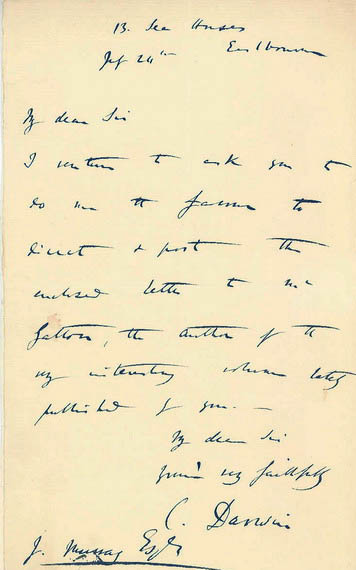 13. Sea Houses
Eastbourne
Sept 24th
My dear Sir
I venture to ask you to
do me the favour to
direct & post the
enclosed letter to Mr
the author of the
very interesting volume lately
published by you. —
My dear Sir
Yours very faithfully
C. Darwin
J. Murray Esqre